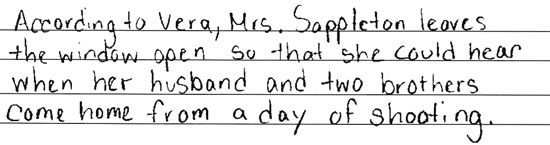 According to Vera, Mrs. Sappleton leaves
the window open so that she could hear
when her husband and two brothers
come home from a day of shooting.